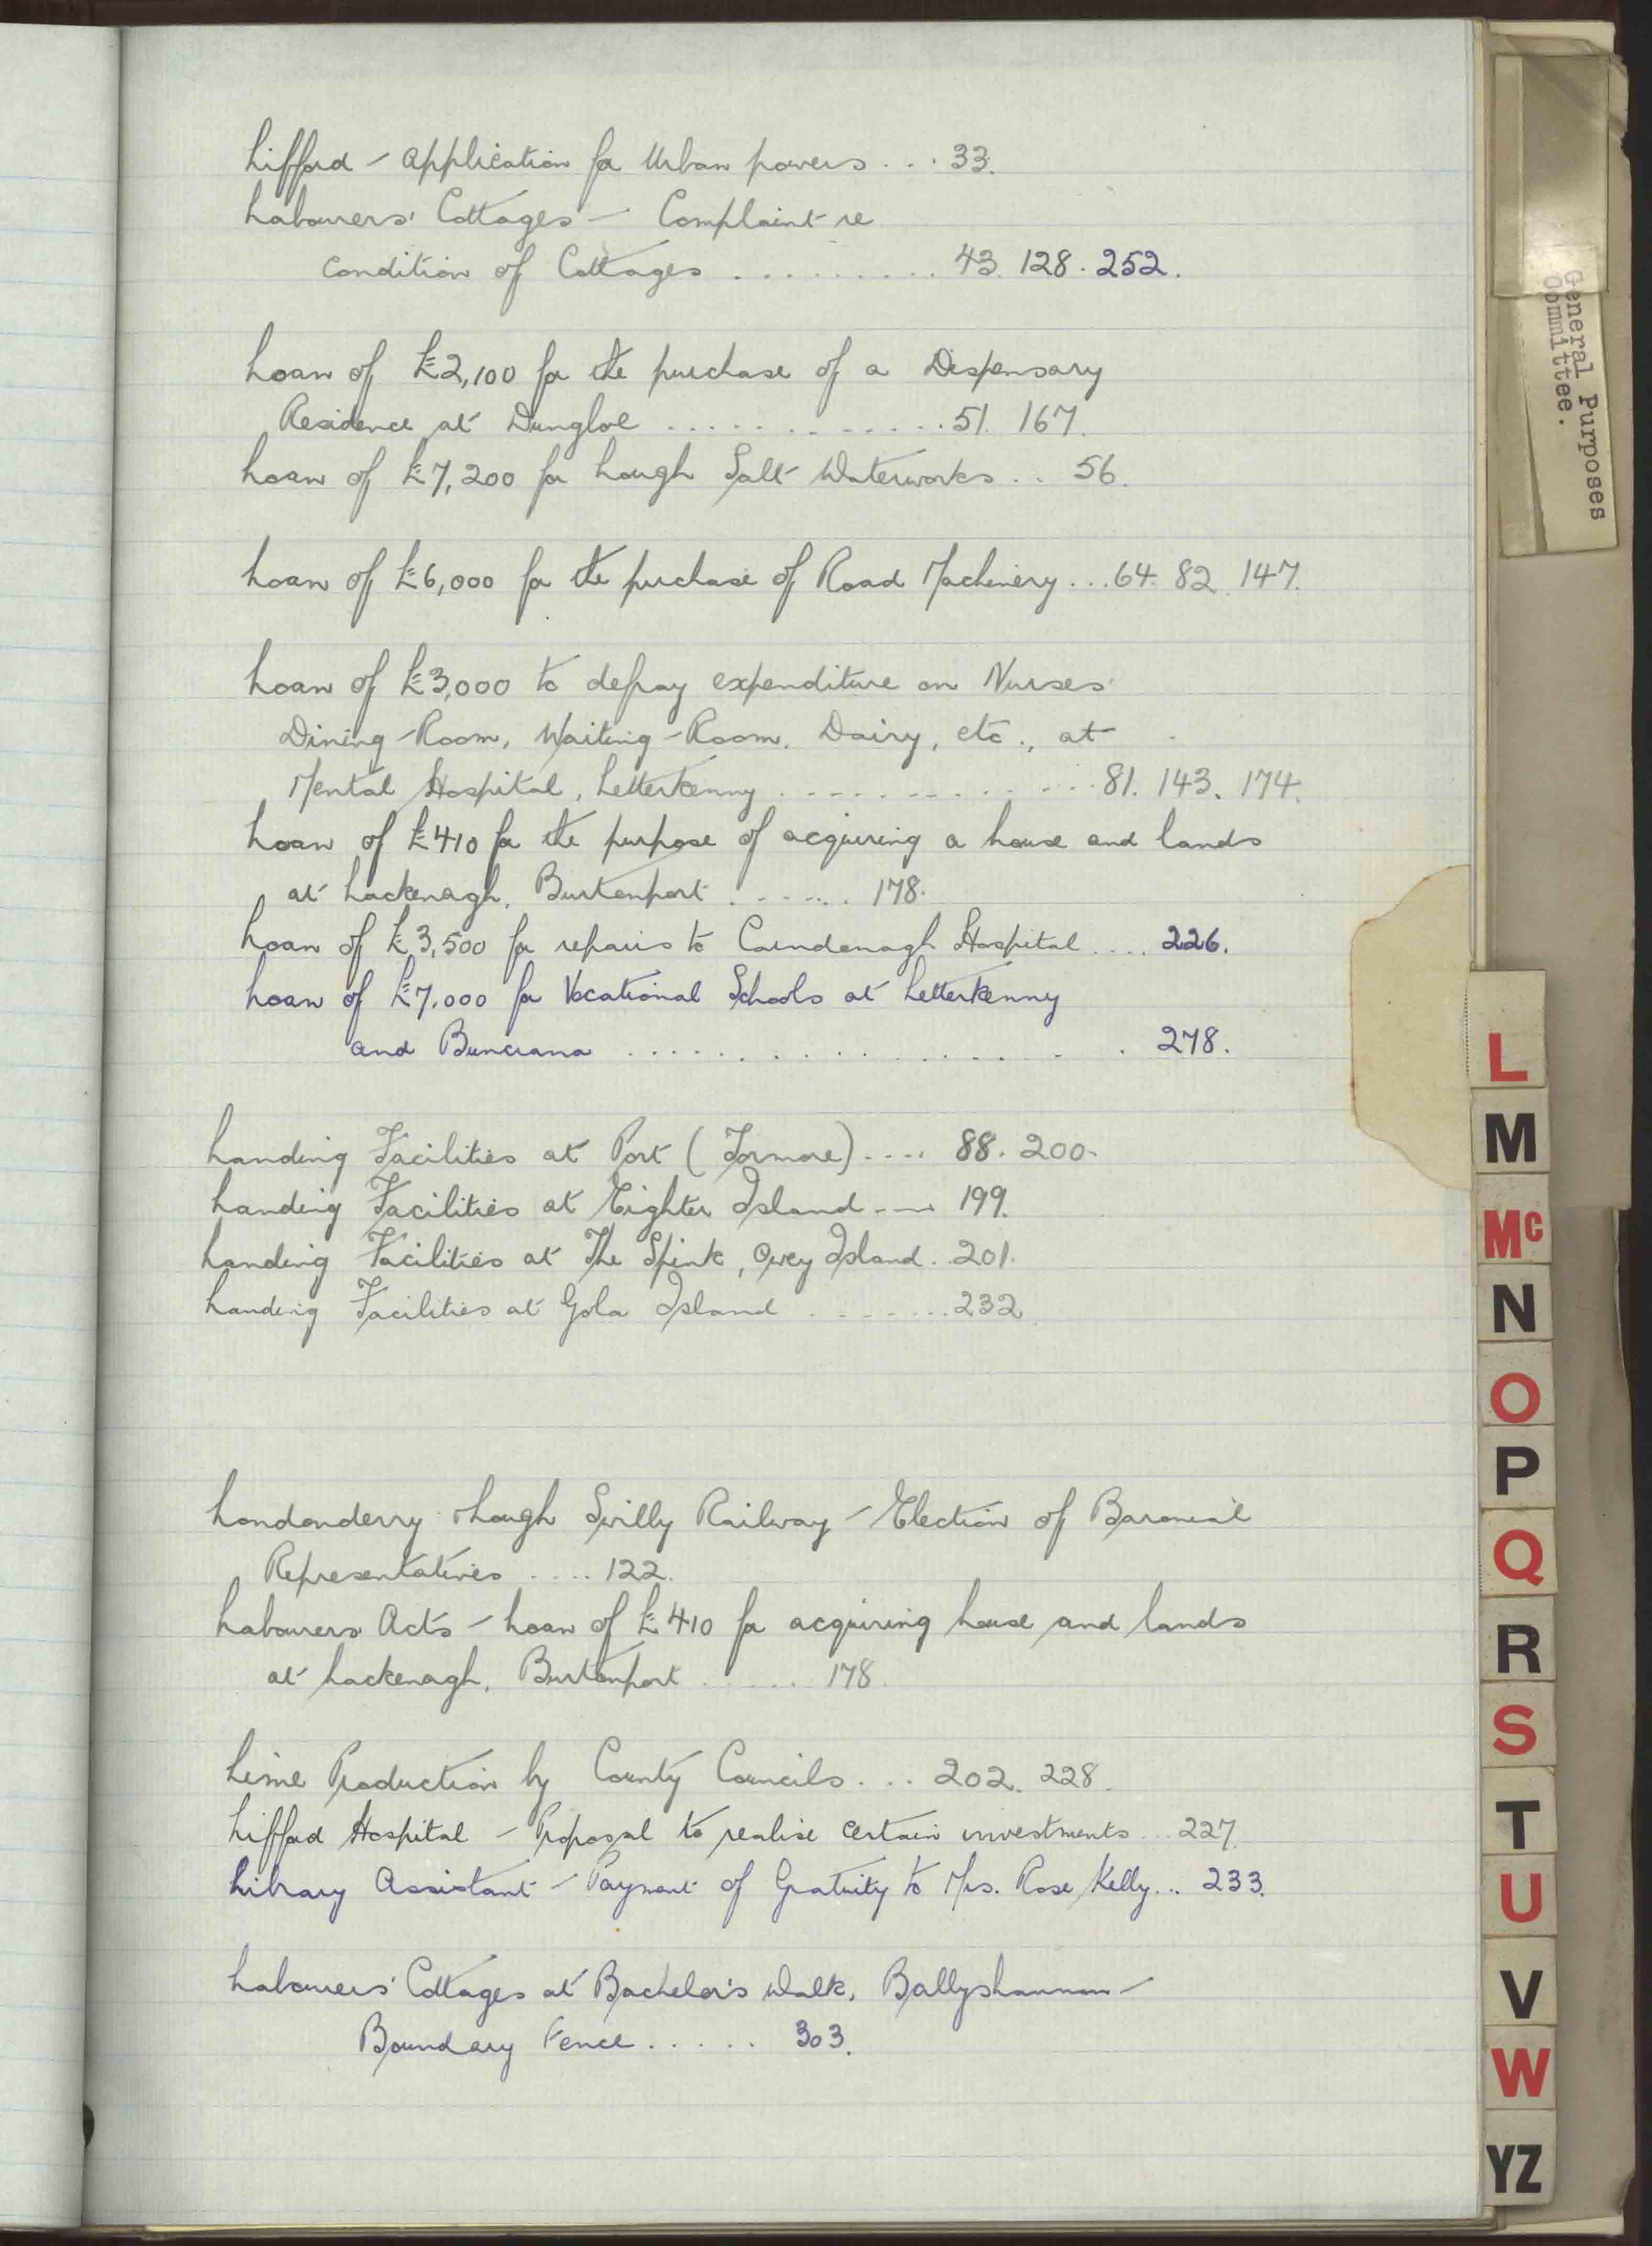 Lifford - Application for Urban powers ... 33.
Labourers' Cottages - Complaint re
condition of Cottages .......... 43. 128. 252.
Loan of £2,100 for the purchase of a Dispensary
Residence at Dungloe ............. 51. 167.
Loan of £7,200 for Lough Salt Waterworks .. 56.
Loan of £6,000 for the purchase of Road Machinery ... 64. 82. 147.
Loan of £3,000 to defray expenditure on Nurses'
Dining-Room, Waiting-Room, Dairy, etc., at
Mental Hospital, Letterkenny ............. 81. 143. 174.
Loan of £410 for the purpose of acquiring a house and lands
at Lackenagh, Burtonport ...... 178.
Loan of £3,500 for repairs to Carndonagh Hospital .... 226.
Loan of £7,000 for Vocational Schools at Letterkenny
and Buncrana .................. 278.
Landing Facilities at Port (Tormore) .... 88. 200.
Landing Facilities at Eighter Island .... 199.
Landing Facilities at The Spink, Owey Island .. 201.
Landing Facilities at Gola Island ........ 232.
Londonderry & Lough Swilly Railway - Election of Baronial
Representatives .... 122.
Labourers Acts - Loan of £410 for acquiring house and lands
at Lackenagh, Burtonport ...... 178.
Lime Production by County Councils ... 202. 228.
Lifford Hospital - Proposal to realise certain investments ... 227.
Library Assistant - Payment of Gratuity to Mrs. Rose Kelly ... 233.
Labourers' Cottages at Bachelor's Walk, Ballyshannon -
Boundary Fence ...... 303.
General Purposes
Committee.
L
M
Mc
N
O
P
Q
R
S
T
U
V
W
YZ